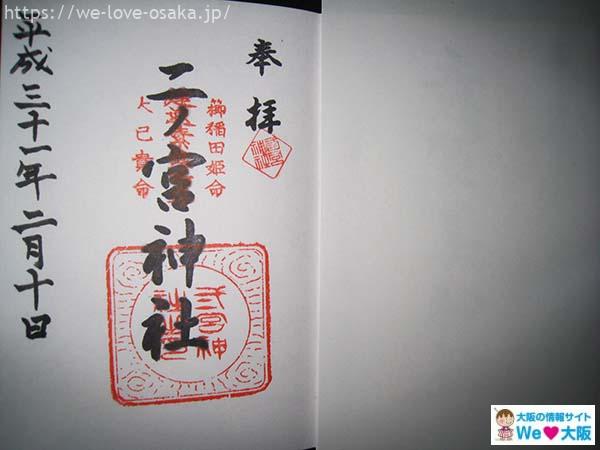 https://we-love-osaka.jp/
奉拝
御稲田姫命
大己貴命
二ノ宮神社
平成三十一年二月十日
大阪の情報サイト
We♥大阪